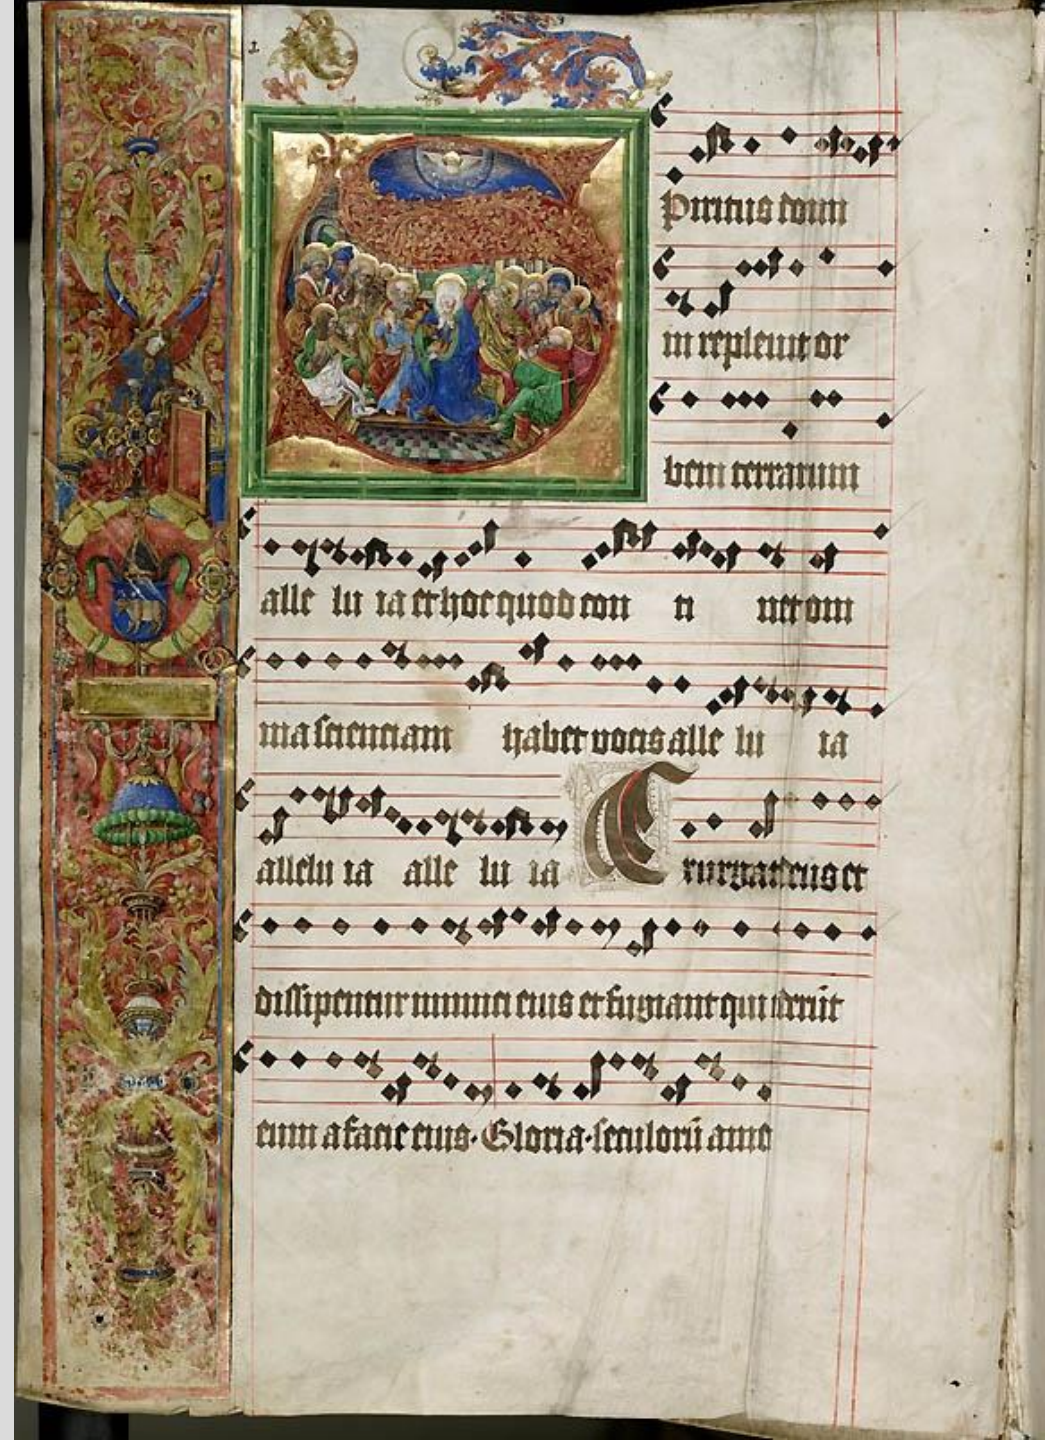 Spiritus domi
ni repleuit or
bem terrarum
alle lu ia et hoc quod con ti net om
nia scientiam habet vocis alle lu ia
allelu ia alle lu ia Exurgat deus et
dissipentur inimici eius et fugiant qui oderūt
eum a facie eius. Gloria. seculorū ame